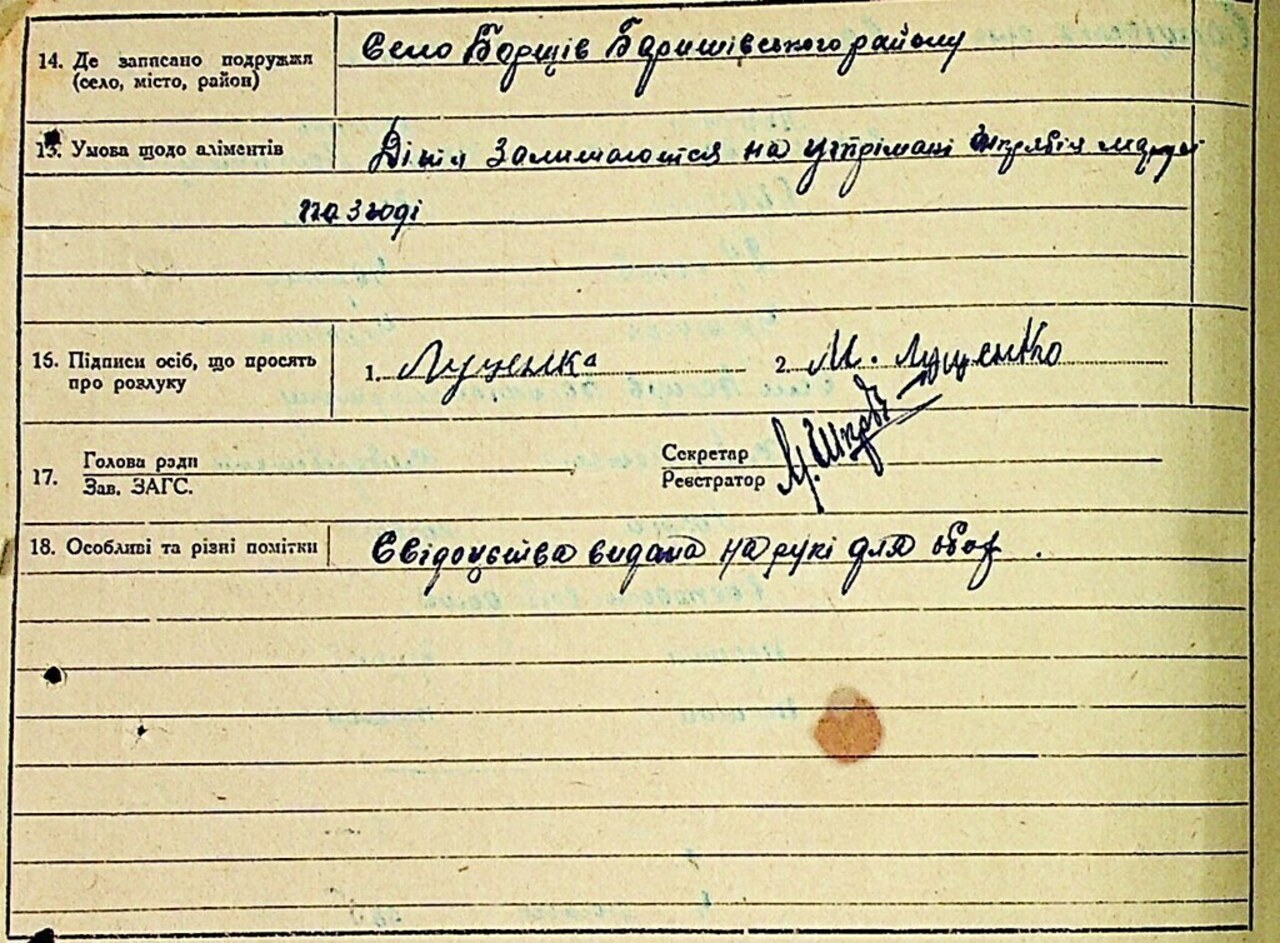 14. Де записано подружжя
(село, місто, район)
Село Борщів Баришівського району
15. Умова щодо аліментів
Дітя залишаются на утрімані Шкрябія марусі
па згоді
16. Підписи осіб, що просять
про розлуку
1. Луценка
2. М. Луценко
17. Голова ради
Зав. ЗАГС.
Секретар
Реєстратор
18. Особливі та різні помітки
Свідоцства видана на рукі для обох .